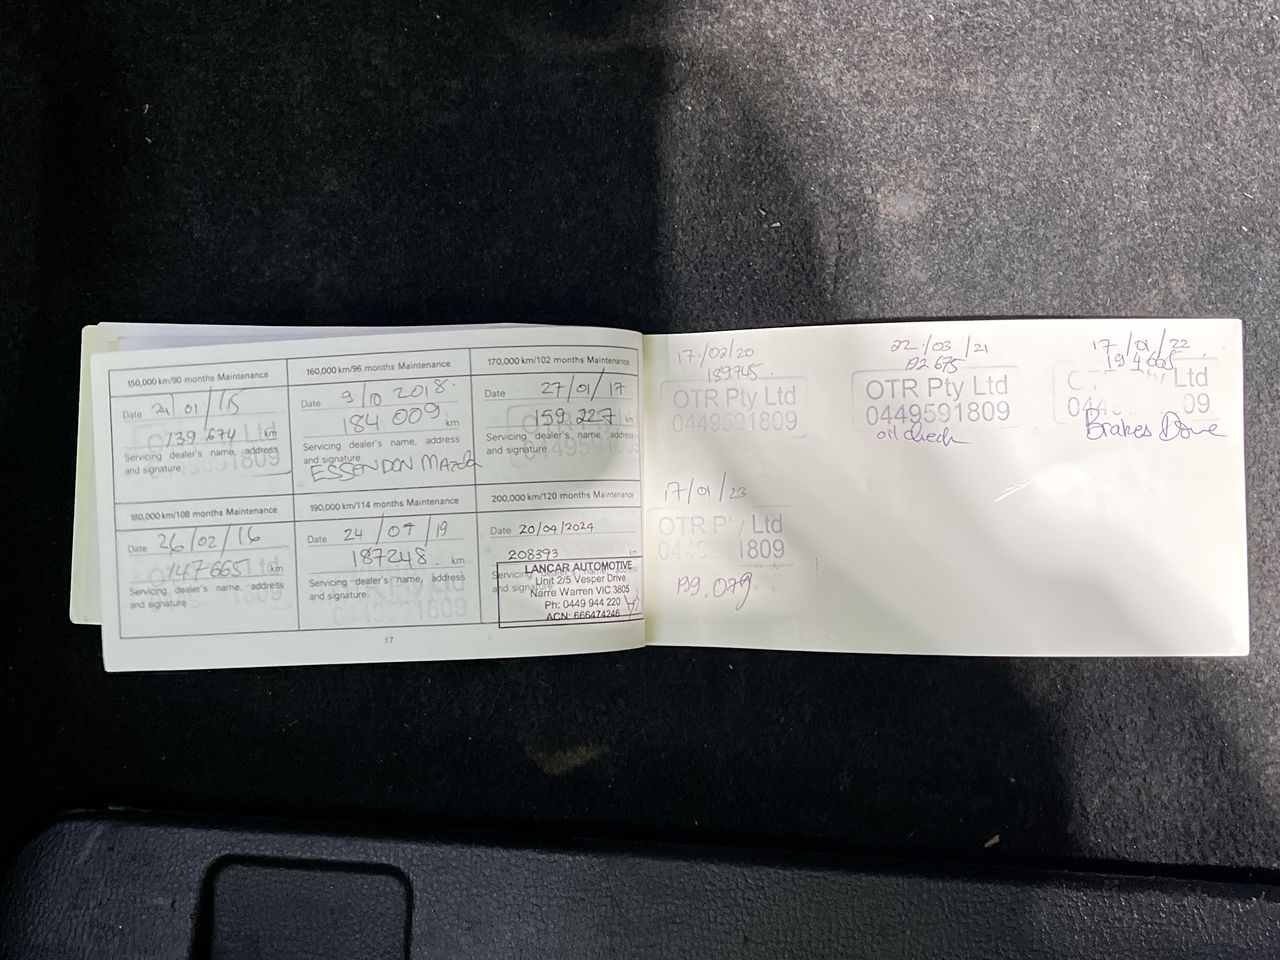 150,000 km/90 months Maintenance
Date 21/01/15
139.674 km
Servicing dealer's name, address
and signature
160,000 km/96 months Maintenance
Date 9/10 2018.
184 009 km
Servicing dealer's name, address
and signature
ESSENDON MAZDA
170,000 km/102 months Maintenance
Date 27/01/17
159.227 km
Servicing dealer's name, address
and signature
180,000 km/108 months Maintenance
Date 26/02/16
147665 km
Servicing dealer's name, address
and signature
190,000 km/114 months Maintenance
Date 24/07/19
187248. km
Servicing dealer's name, address
and signature
200,000 km/120 months Maintenance
Date 20/04/2024
208393
LANCAR AUTOMOTIVE
Unit 2/5 Vesper Drive
Narre Warren VIC 3805
Ph: 0449 944 220
ACN: 666474246
17
17/02/20
189745.
OTR Pty Ltd
0449591809
22/03/21
192675
OTR Pty Ltd
0449591809
oil check
17/01/22
Ltd
09
Brakes Done
17/01/23
OTR P Ltd
1809
199.079